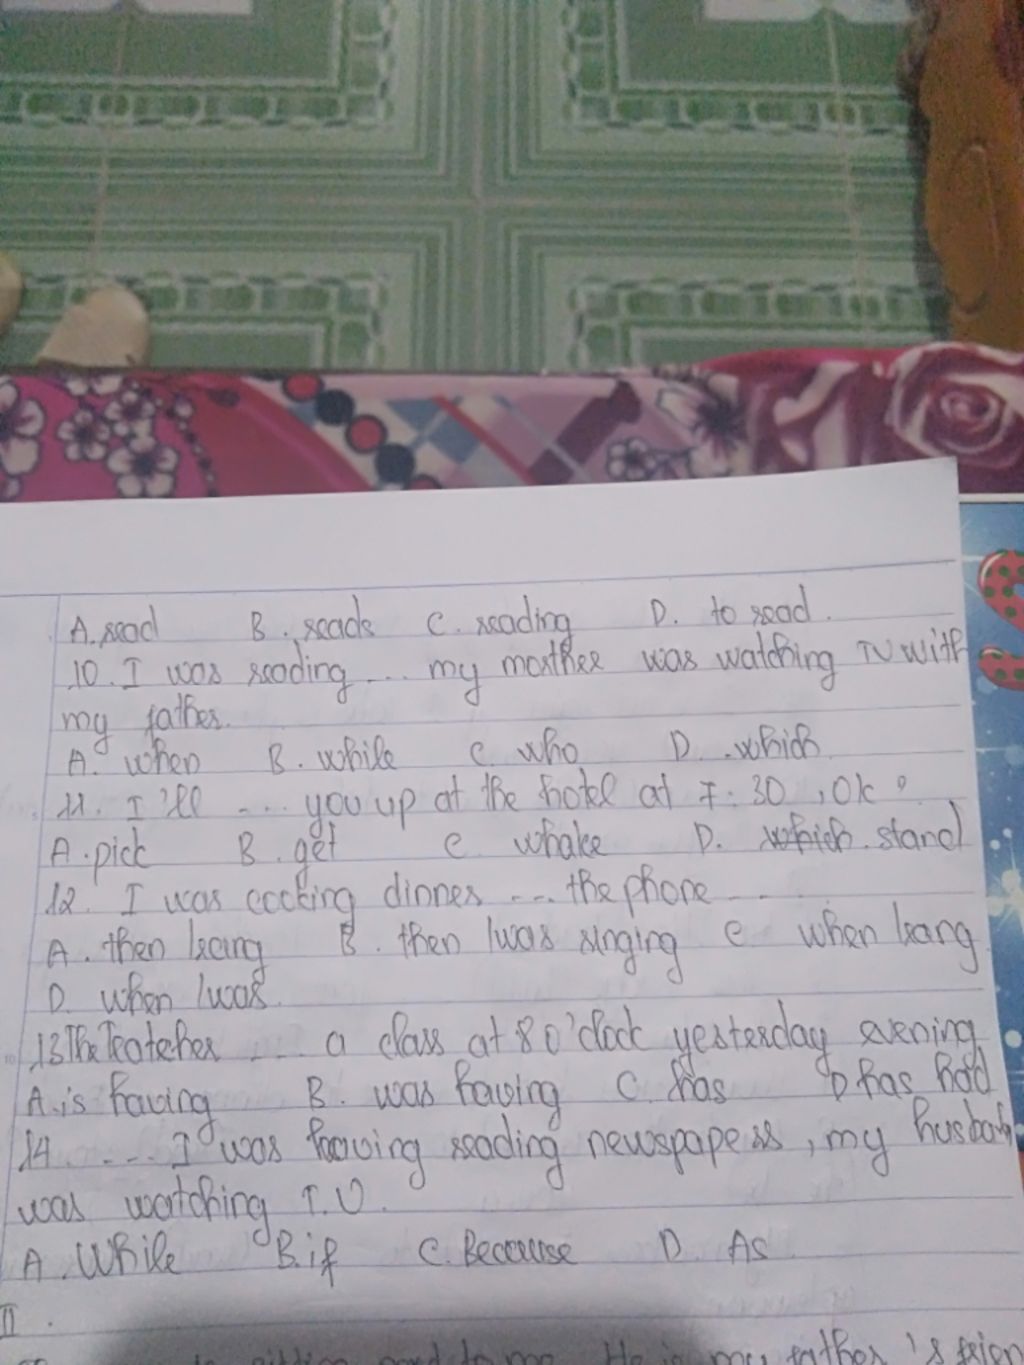 A. read B. reads C. reading D. to read.
10. I was reading ... my mother was watching TV with
my father.
A. when B. while C. who D. which
11. I'll ... you up at the hotel at 7:30, Ok?
A. pick B. get C. whake D. which. stand
12. I was cooking dinner ... the phone ...
A. then B. then was ringing C when
D. when was.
13 The Teatcher ... a class at 8 o'clock yesterday evening
A. is having B. was having C. has D has had
14 ... I was having reading newspapers, my
was watching T.V.
A. While B. if C. Because D. As
II.
to me. He is my father's